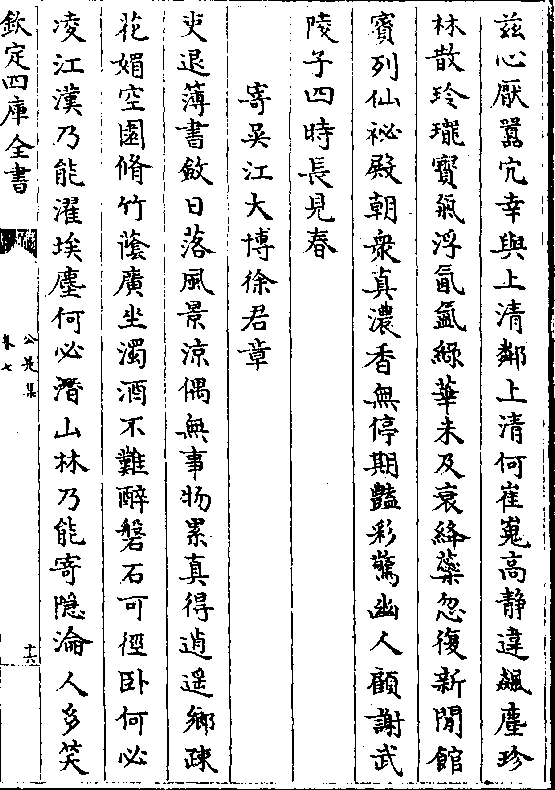 茲心厭囂宂幸與上清鄰上清何崔嵬高静違飊塵珍
林散玲瓏寳氣浮氤氲緑華未及衰絳蘂忽復新閒館
賓列仙祕殿朝衆真濃香無停期豔彩驚幽人顧謝武
陵子四時長見春
寄吴江大博徐君章
吏退薄書斂日落風景涼偶無事物累真得逍遥鄉疎
花媚空園脩竹蔭廣坐濁酒不難醉磐石可徑卧何必
凌江漢乃能濯埃塵何必潛山林乃能寄隠淪人多笑
欽定四庫全書
公是集
卷七
十六